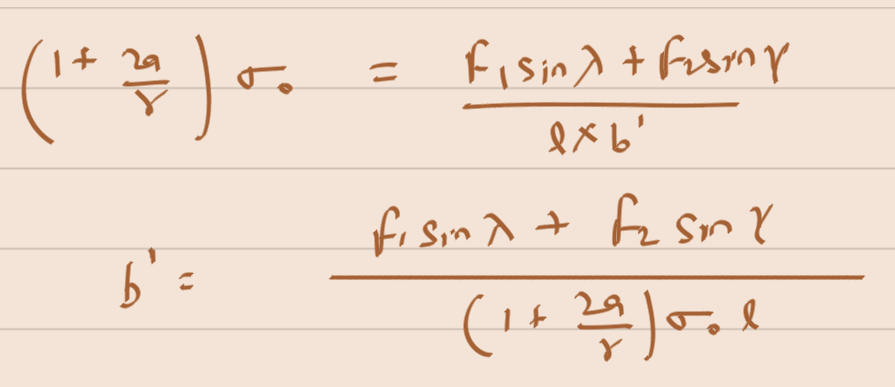 (1 + 2a/r) σ₀ = F₁ sin λ + F₂ sin γ / l × b'
b' = F₁ sin λ + F₂ sin γ / (1 + 2a/r) σ₀ l